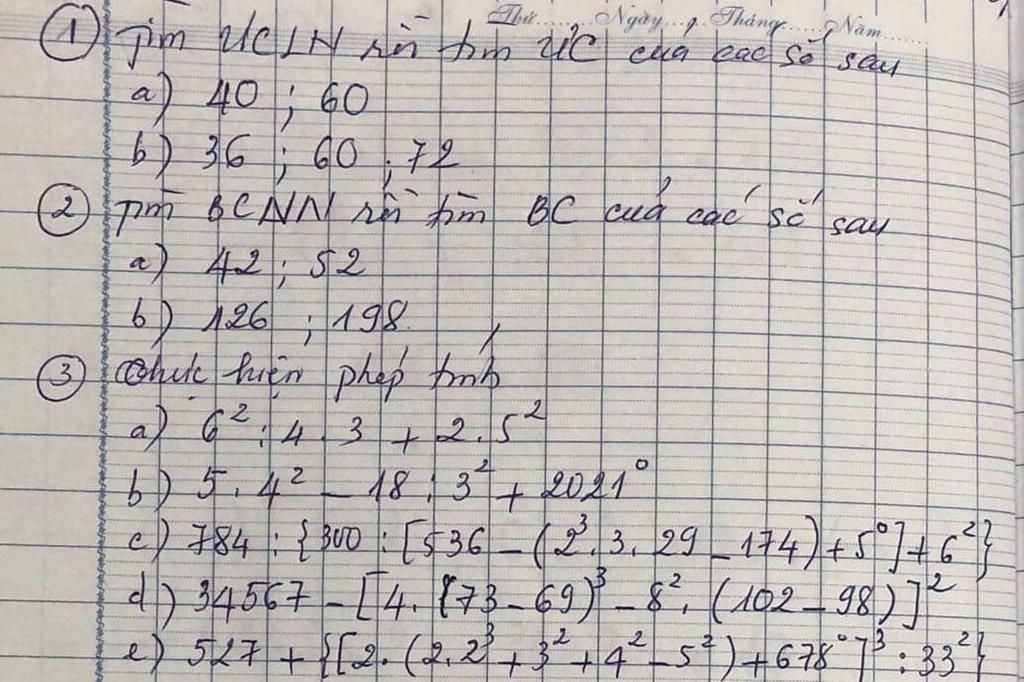 Thứ........Ngày....Tháng.....Năm.......
① Tìm ƯCLN rồi tìm ƯC của các số sau
a) 40 ; 60
b) 36 ; 60 ; 72
② Tìm BCNN rồi tìm BC của các số sau
a) 42 ; 52
b) 126 ; 198
③ Thực hiện phép tính
a) 6² : 4 . 3 + 2 . 5²
b) 5 . 4² - 18 : 3² + 2021⁰
c) 784 : {300 : [536 - (2³ . 3 . 29 - 174) + 5⁰] + 6²}
d) 34567 - [4 . (73 - 69)³ - 8² . (102 - 98)]²
e) 527 + {[2 . (2 . 2³ + 3² + 4² - 5²) + 678⁰]³ : 33²}